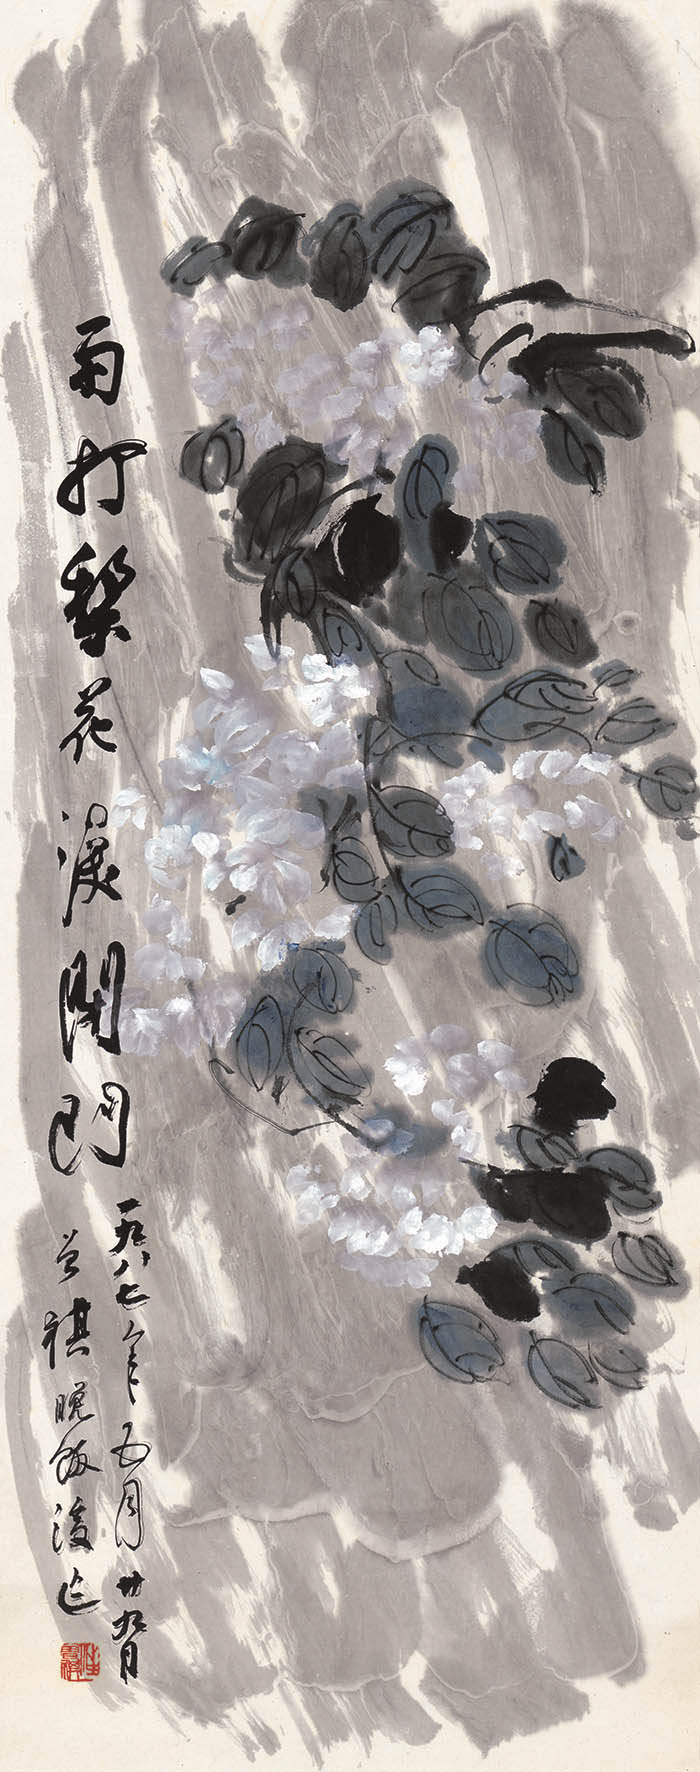 雨打梨花深閉門
一九八七年五月廿九日
曾祺晚飯後作
汪曾祺